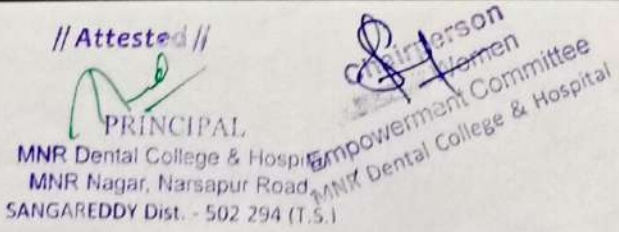 // Attested //
PRINCIPAL
MNR Dental College & Hospi
MNR Nagar, Narsapur Road,
SANGAREDDY Dist. - 502 294 (T.S.)
Chairperson
Women
Empowerment Committee
MNR Dental College & Hospital